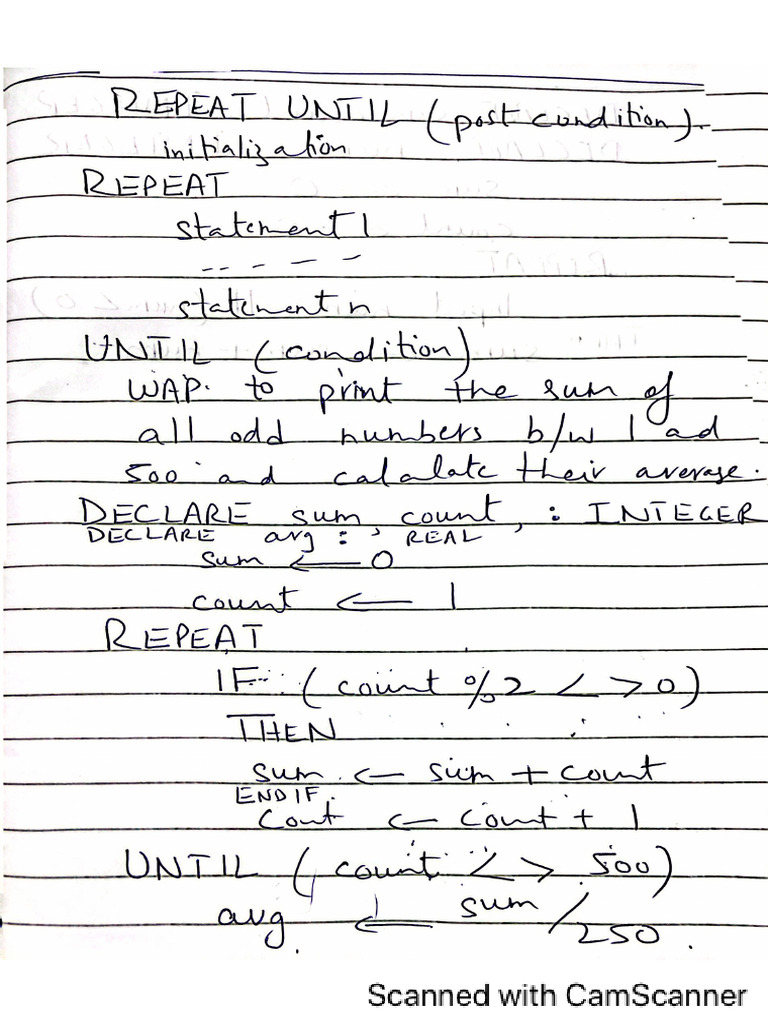 REPEAT UNTIL (post condition).
initialization
REPEAT
statement 1
-- - - -
statement n
UNTIL (condition)
WAP. to print the sum of
all odd numbers b/w 1 ad
500 and calalate their average.
DECLARE sum count, : INTEGER
DECLARE avg : , REAL
sum ← 0
count ← 1
REPEAT
IF (count %2 < > 0)
THEN
sum ← sum + count
ENDIF.
Cont ← count + 1
UNTIL (count < > 500)
avg ← sum/250.
Scanned with CamScanner